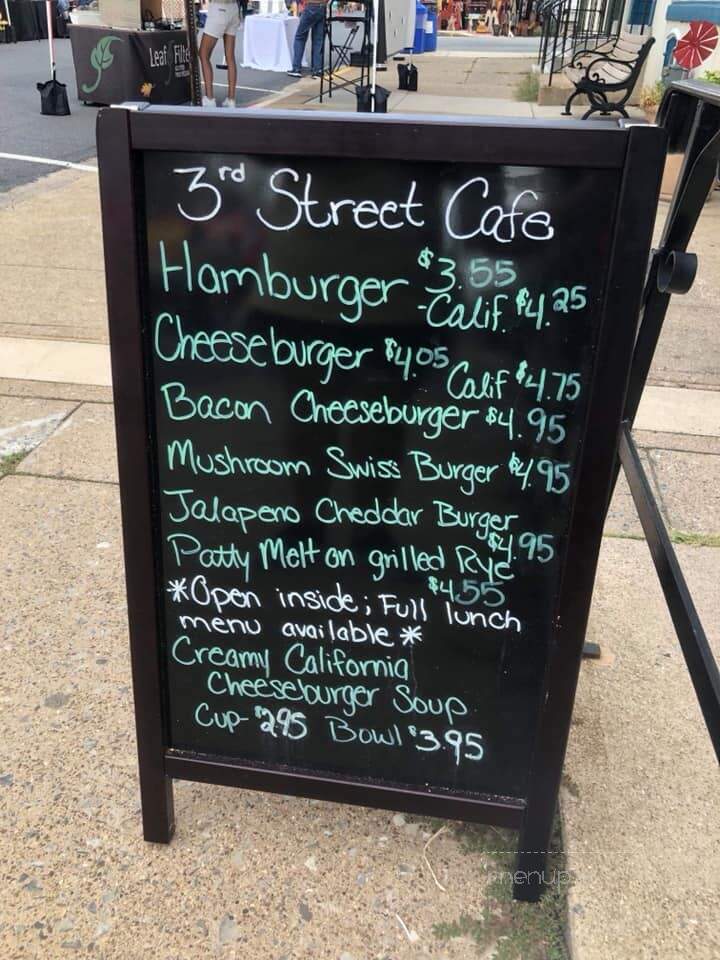 Leaf Filter
3rd Street Cafe
Hamburger $3.55
-Calif. $4.25
Cheeseburger $4.05
Calif $4.75
Bacon Cheeseburger $4.95
Mushroom Swiss Burger $4.95
Jalapeno Cheddar Burger
$4.95
Patty Melt on grilled Rye
$4.55
*Open inside; Full lunch
menu available*
Creamy California
Cheeseburger Soup
Cup- $2.95 Bowl $3.95
menup